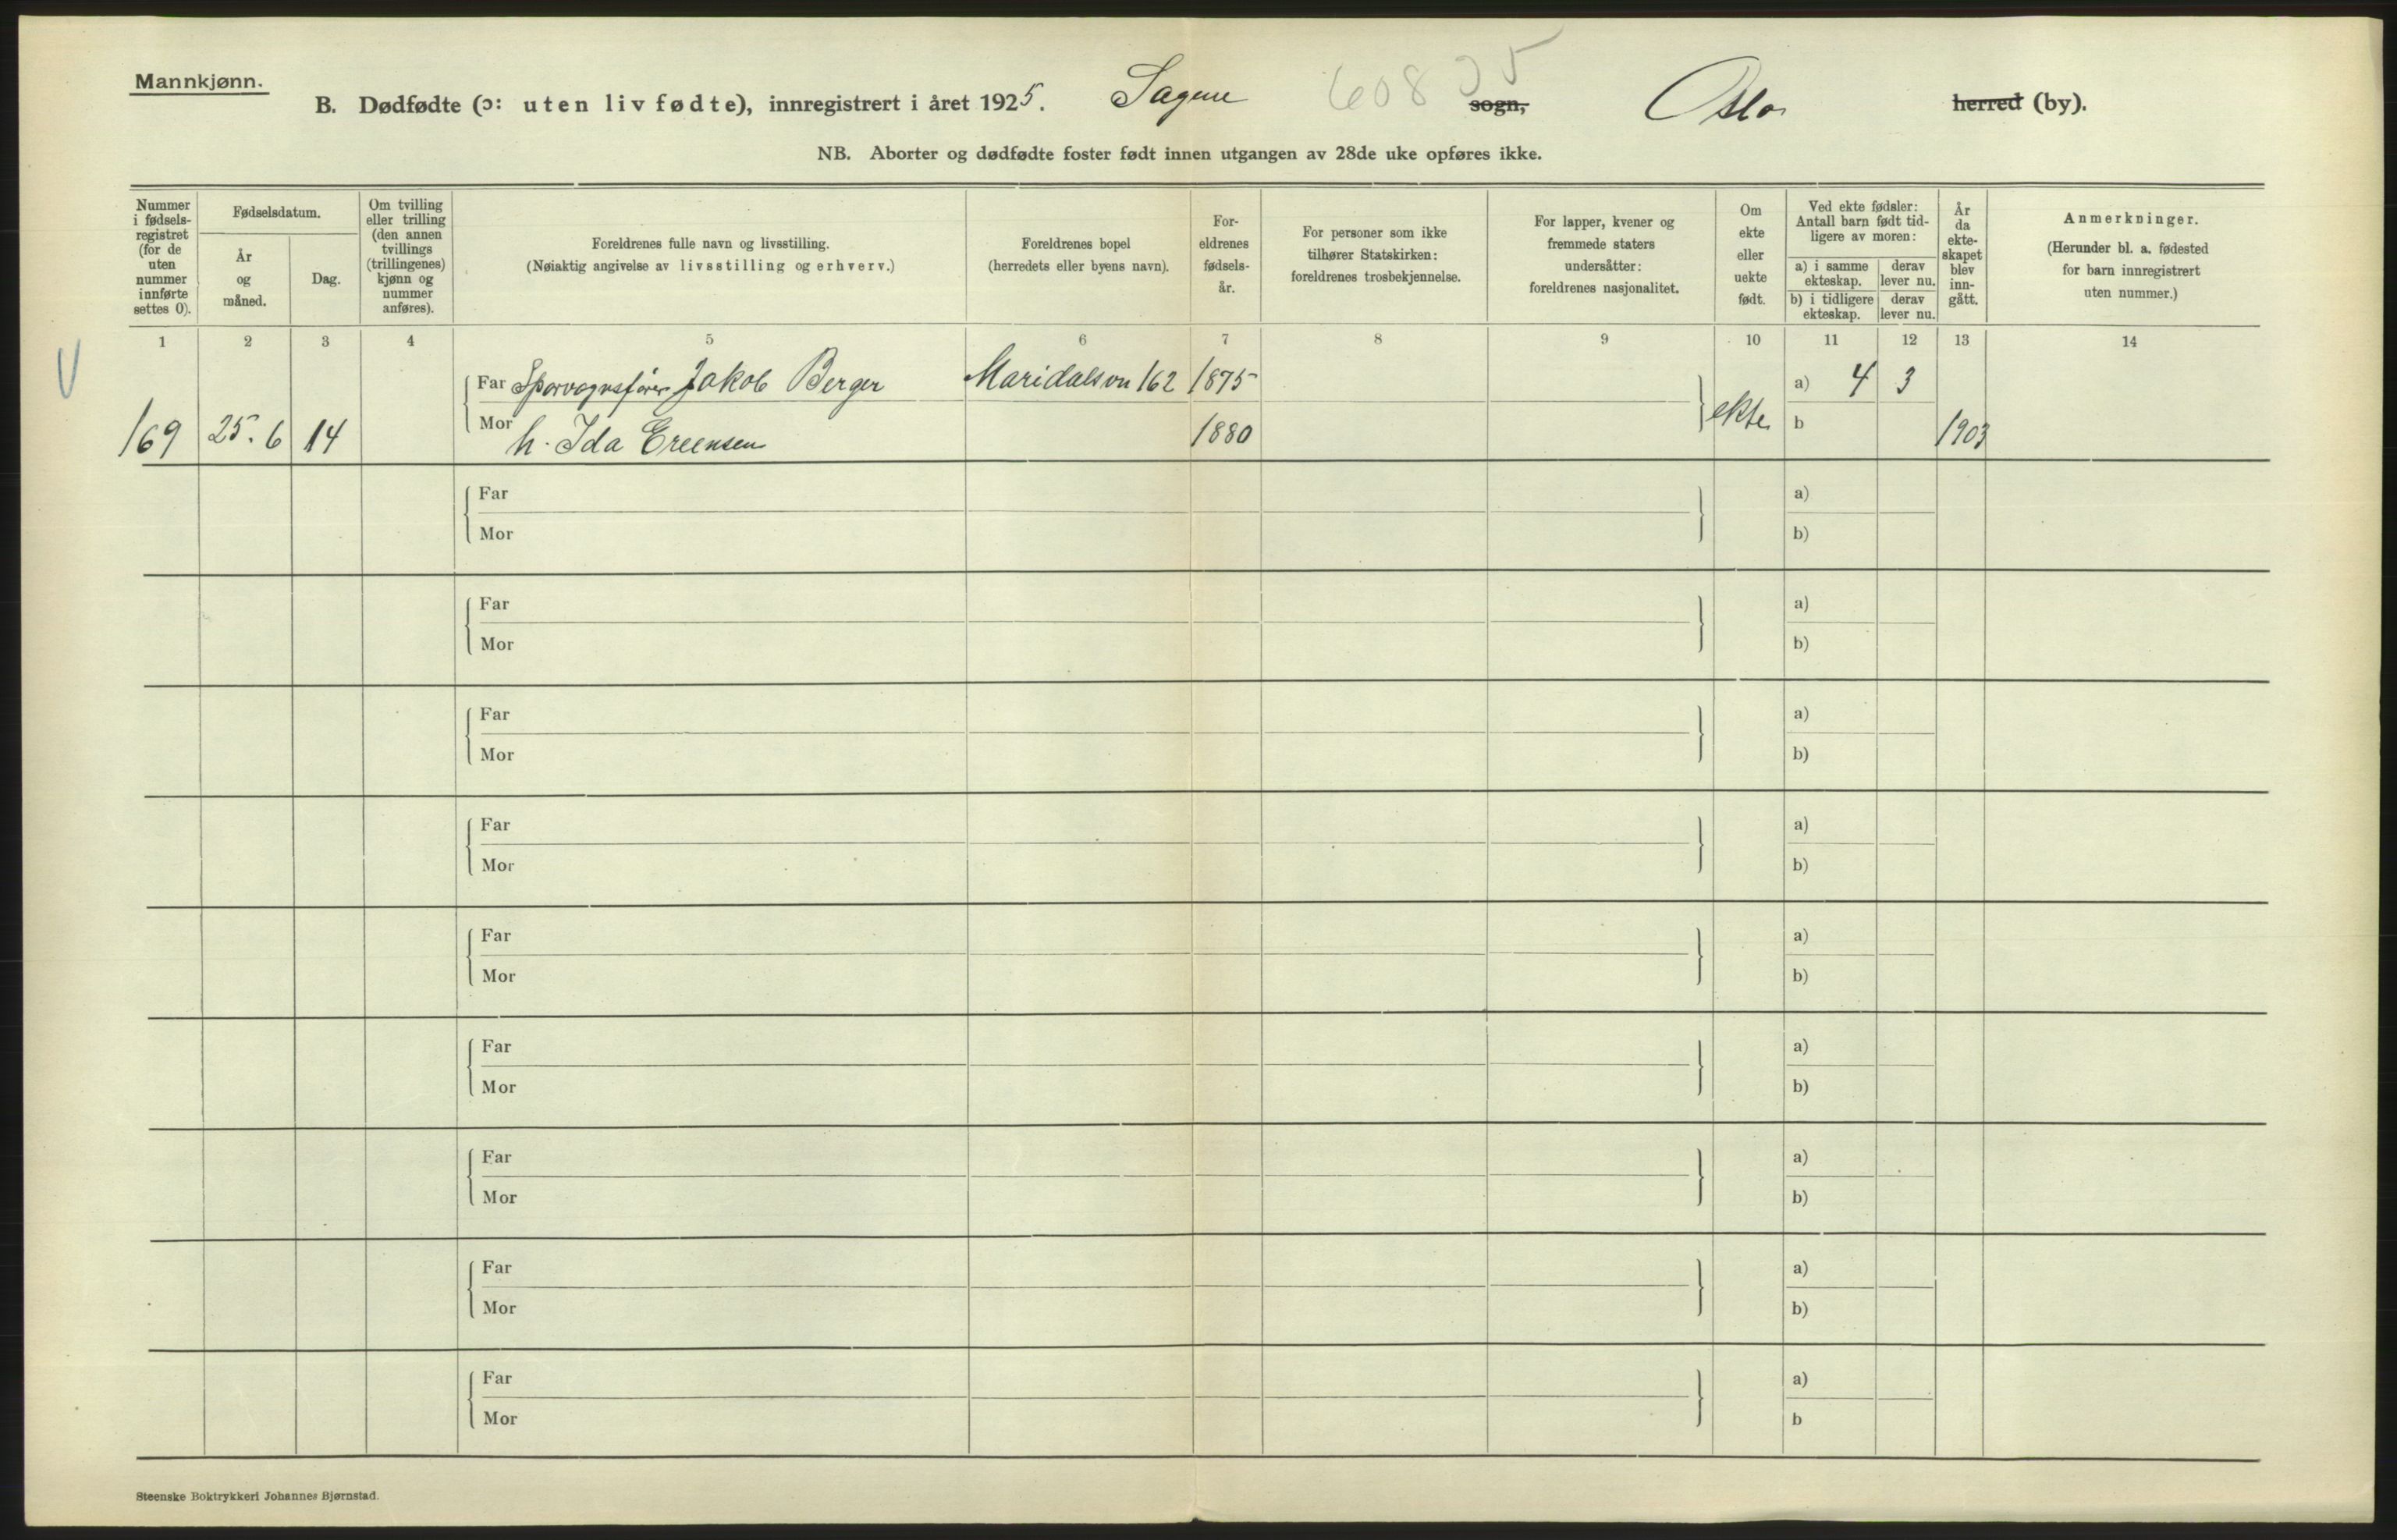 Mannkjønn.
B. Dødfødte (ɔ: uten liv fødte), innregistrert i året 1925. Sagene sogn, Oslo herred (by).
6085
NB. Aborter og dødfødte foster født innen utgangen av 28de uke opføres ikke.
Nummer i fødsels-registret (for de uten nummer innførte settes 0).
Fødselsdatum.
År og måned.
Dag.
Om tvilling eller trilling (den annen tvillings (trillingenes) kjønn og nummer anføres).
Foreldrenes fulle navn og livsstilling.
(Nøiaktig angivelse av livsstilling og erhverv.)
Foreldrenes bopel
(herredets eller byens navn).
For-eldrenes fødsels-år.
For personer som ikke tilhører Statskirken: foreldrenes trosbekjennelse.
For lapper, kvener og fremmede staters undersåtter: foreldrenes nasjonalitet.
Om ekte eller uekte født.
Ved ekte fødsler: Antall barn født tid-ligere av moren:
a) i samme ekteskap.
derav lever nu.
b) i tidligere ekteskap.
derav lever nu.
År da ekte-skapet blev inn-gått.
Anmerkninger.
(Herunder bl. a. fødested for barn innregistrert uten nummer.)
1 2 3 4 5 6 7 8 9 10 11 12 13 14
V
Far Sporvognsfører Jakob Berger Maridalsvn 162 1875 a) 4 3
169 25. 6 14 Mor h. Ida 1880 ekte b 1903
Far a)
Mor b)
Far a)
Mor b)
Far a)
Mor b)
Far a)
Mor b)
Far a)
Mor b)
Far a)
Mor b)
Far a)
Mor b)
Far a)
Mor b)
Far a)
Mor b
Steenske Boktrykkeri Johannes Bjørnstad.